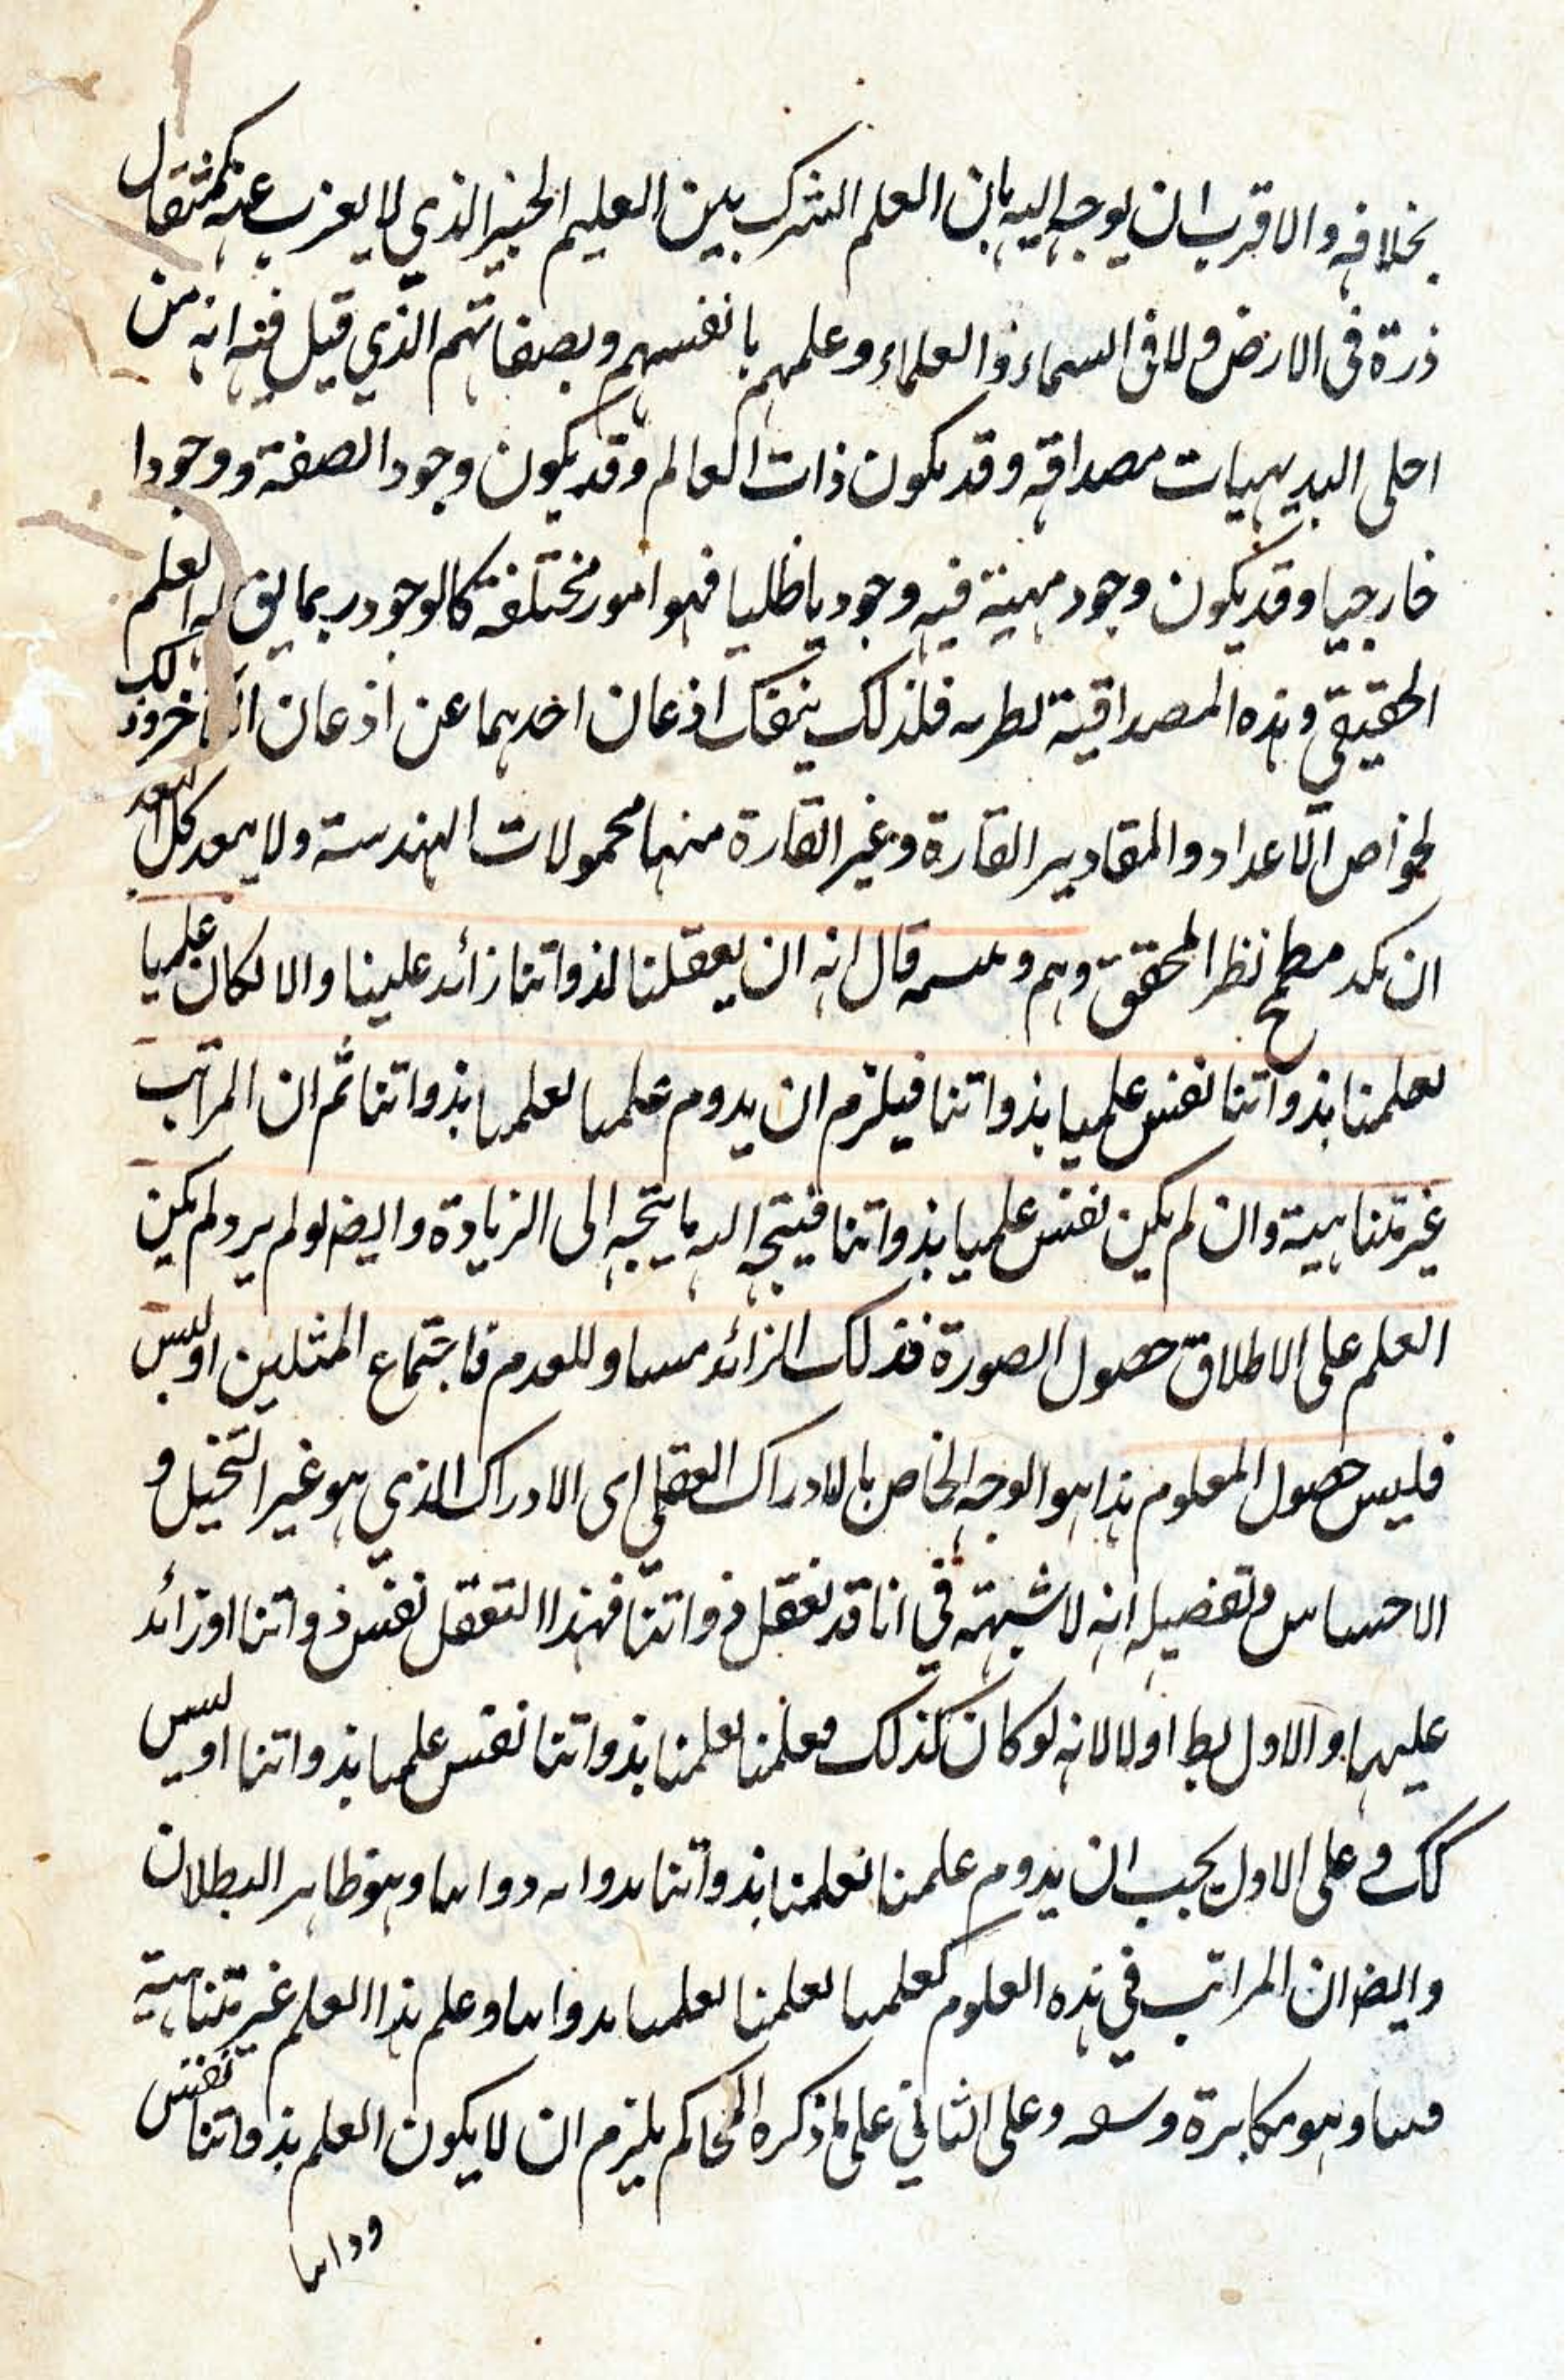 بخلافه والاقرب ان يوجه اليه بان العلم المشترك بين العليم الخبير الذي لا يعزب عنه كمثقال
ذرة فى الارض ولا فى السماء والعلماء وعلمهم بانفسهم وبصفاتهم الذي قيل فيه انه من
اجلى البديهيات مصداقه وقد يكون ذات العالم وقد يكون وجود الصفة ووجودا
خارجيا وقد يكون وجود مهية فيه وجوديا ظليا فهو امور مختلفة كالوجود ربما يق له العلم
الحقيقي وهذه المصداقية نظرية فلذلك ينفك اذعان احدهما عن اذعان الآخر وذلك
لخواص الاعداد والمقادير القارة وغير القارة منها محمولات الهندسة ولا يبعد كل البعد
ان يكون مطمح نظر المحقق وهم قال انه ان تعقلنا لذواتنا زائد علينا والا لكان علمنا
بعلمنا بذواتنا نفس علمنا بذواتنا فيلزم ان يدوم علمنا بعلمنا بذواتنا ثم ان المراتب
غير متناهية وان لم يكن نفس علمنا بذواتنا فيتجه اليه ما يتجه الى الزيادة وايضا لو لم يرد لم يكن
العلم على الاطلاق حصول الصورة فذلك الزائد مساو للعدم فاجتماع المثلين اوليس
فليس حصول المعلوم هذا هو الوجه الخاص بالادراك العقلى اى الادراك الذي هو غير التخيل و
الاحساس وتفصيله انه لا شبهة في انا قد نعقل ذواتنا فهذا التعقل نفس ذواتنا او زائد
عليها والاول بط اولا لانه لو كان كذلك فعلمنا بعلمنا بذواتنا نفس علمنا بذواتنا اوليس
كك وعلى الاول يجب ان يدوم علمنا بعلمنا بذواتنا بدوام ذواتنا وهو ظاهر البطلان
وايضا ان المراتب في هذه العلوم كعلمنا بعلمنا بعلمنا بذواتنا وعلم هذا العلم غير متناهية
فينا وهو مكابرة وسفه وعلى الثاني على ما ذكره المحاكم يلزم ان لا يكون العلم بذواتنا نفس
ذواتنا